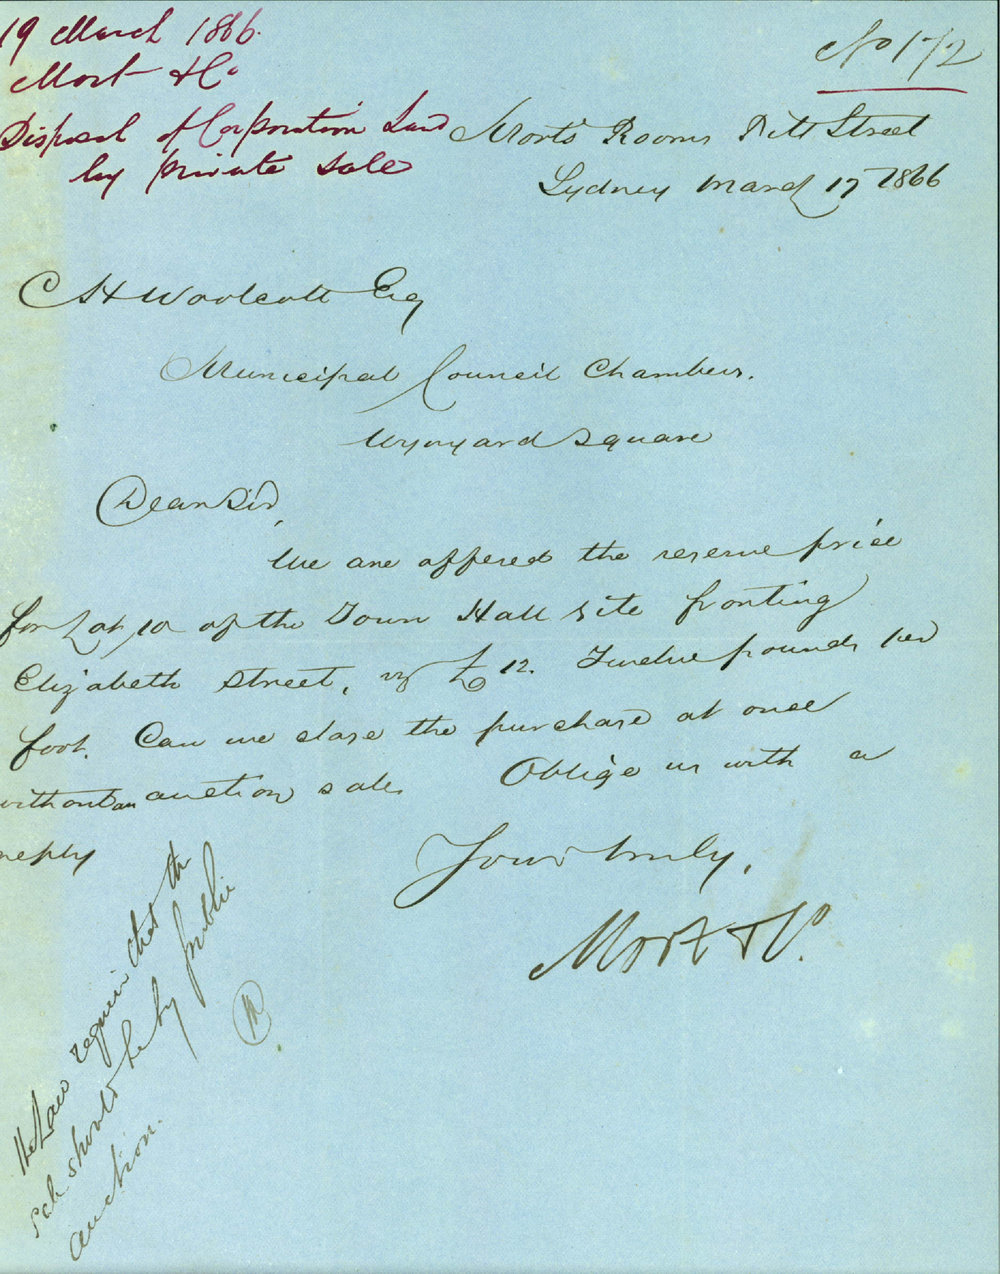 19 March 1866.
Mort & Co
Disposal of Corporation Land
by private sale
No 172
Morts Rooms Pitt Street
Sydney March 17 1866
C H Woolcott Esq
Municipal Council Chambers.
Wynyard Square
Dear Sir,
We are offered the reserve price
for Lot 10 of the Town Hall site fronting
Elizabeth Street, vz £12. Twelve pounds per
foot. Can we close the purchase at once
without an auction sale. Oblige us with a
reply
Yours truly,
Mort & Co.
The Law requires that the
sale should be by public
auction.